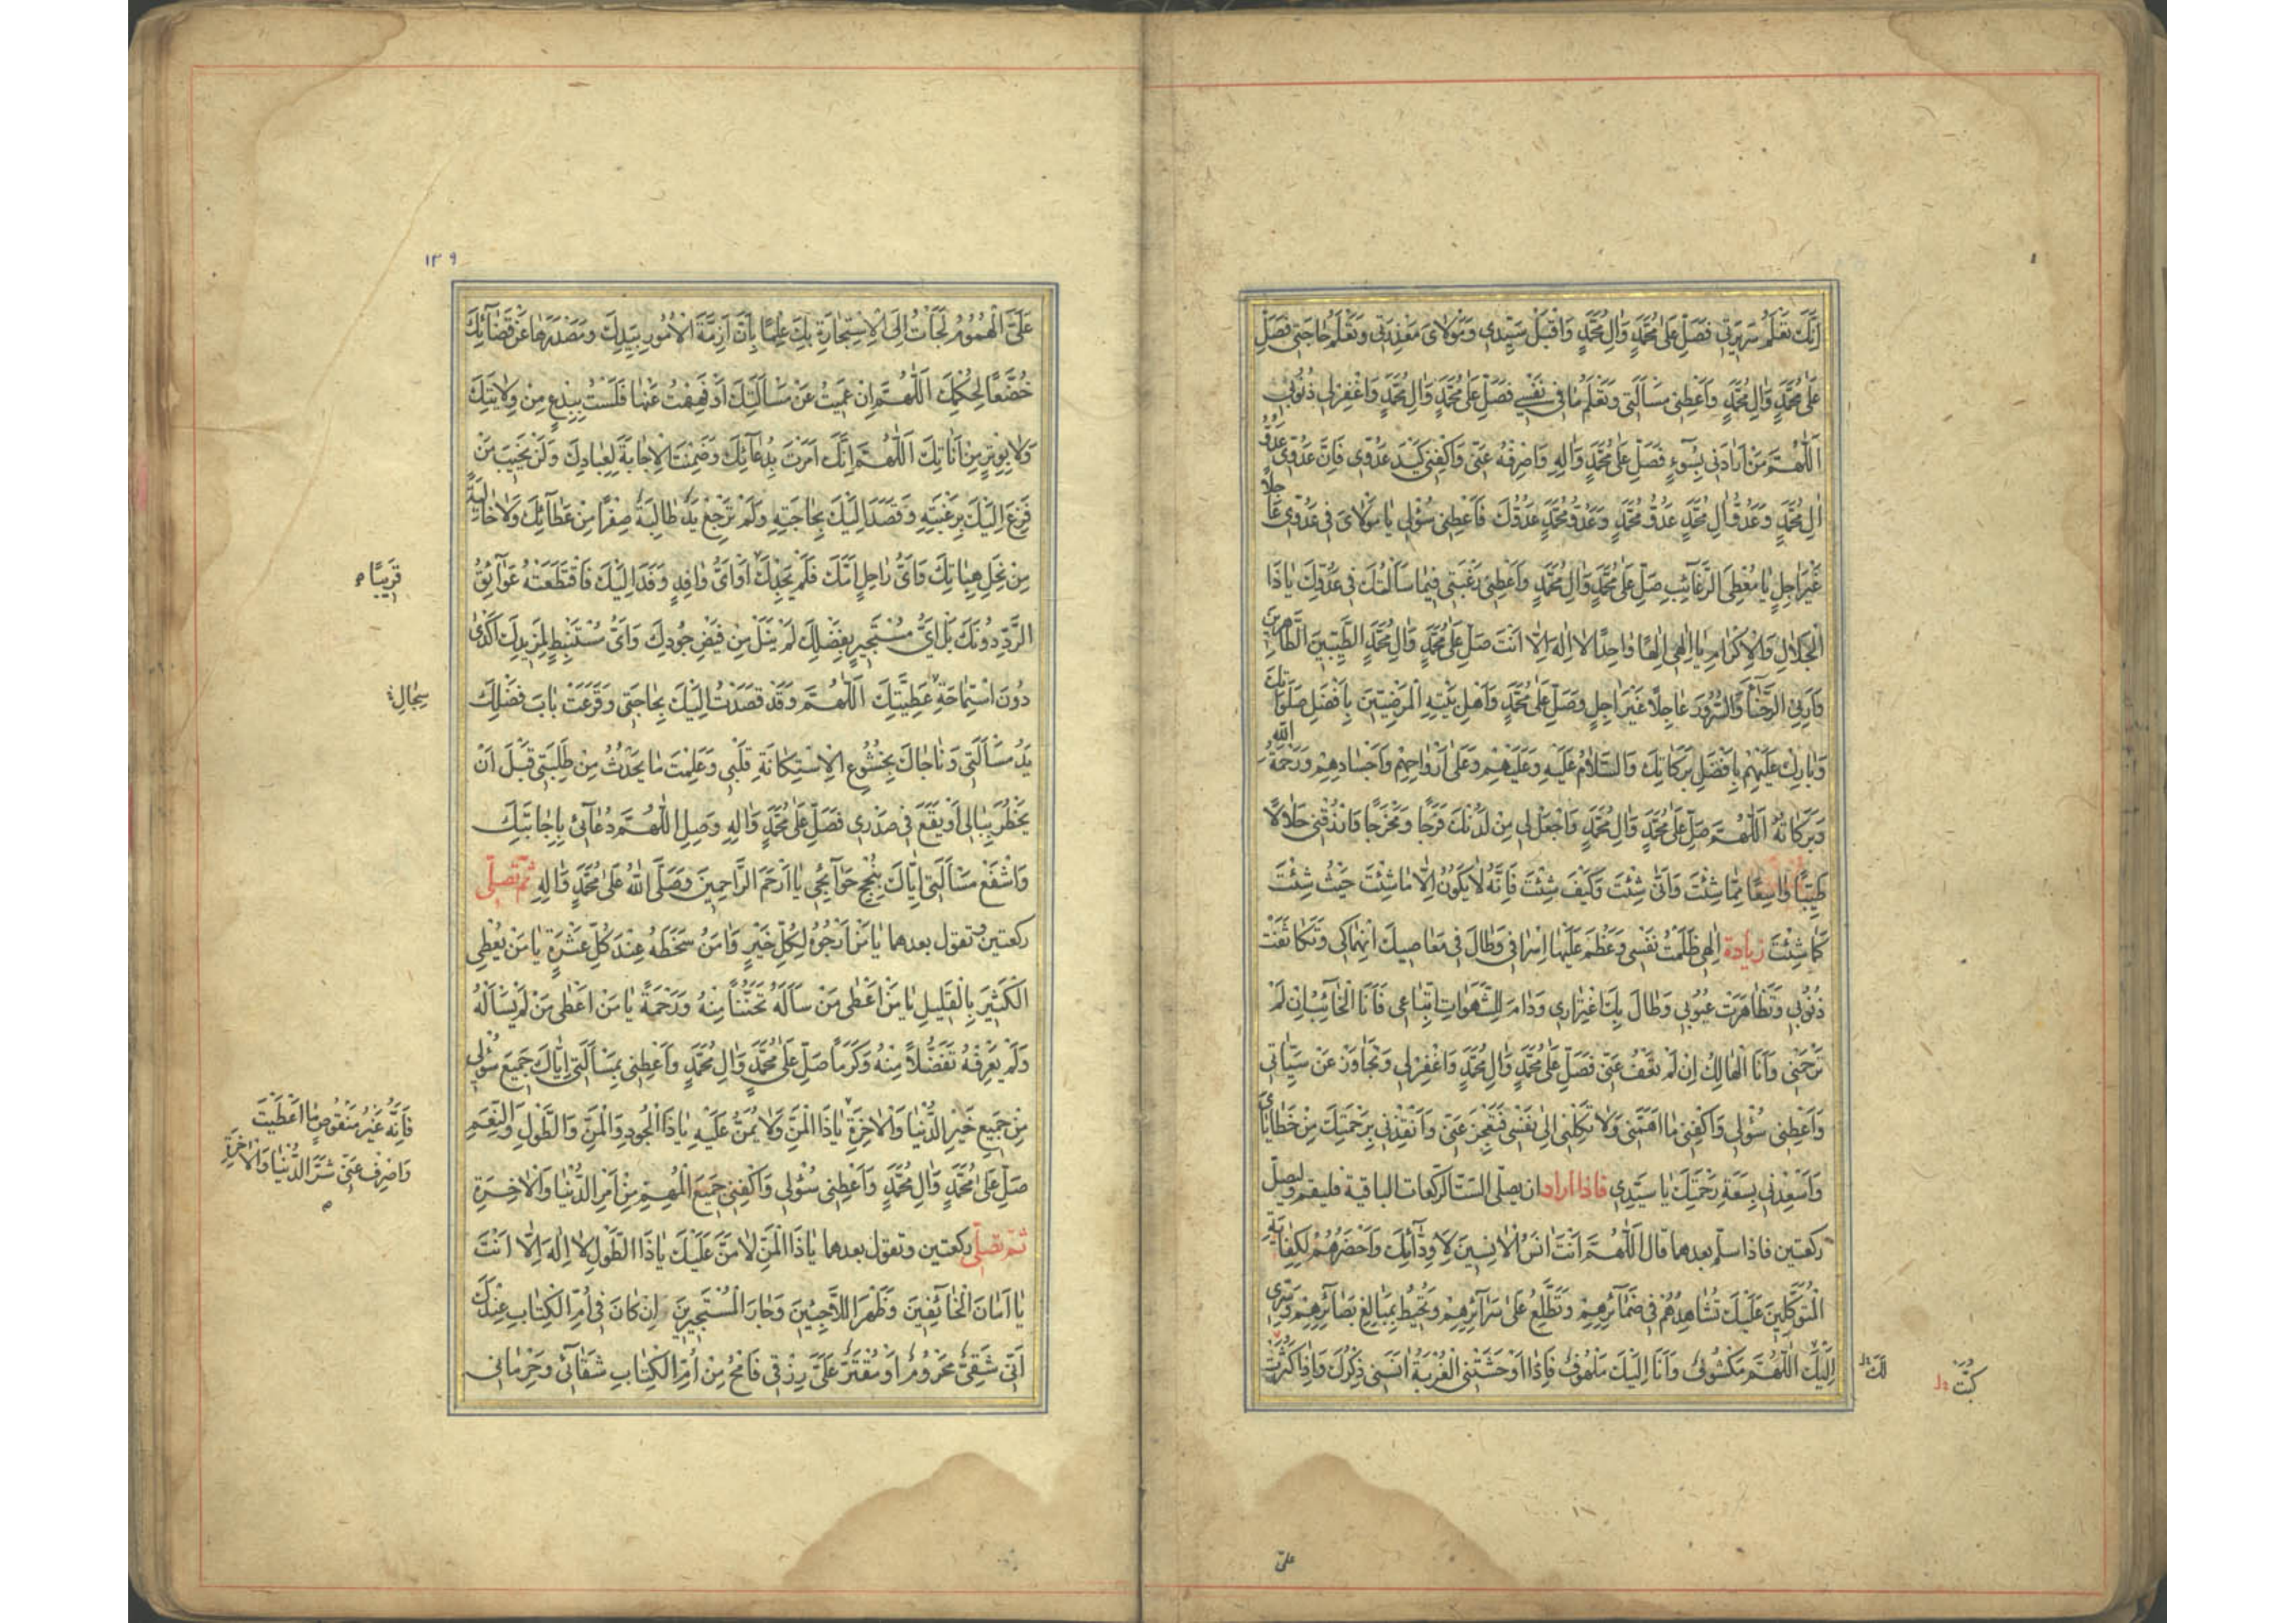 اِنَّكَ تَعْلَمُ سَرِيرَتِي فَصَلِّ عَلٰى مُحَمَّدٍ وَاٰلِ مُحَمَّدٍ وَاقْبَلْ سَيِّدِي وَمَوْلَايَ مَعْذِرَتِي وَتَعْلَمُ حَاجَتِي فَصَلِّ
عَلٰى مُحَمَّدٍ وَاٰلِ مُحَمَّدٍ وَاَعْطِنِي مَسْأَلَتِي وَتَعْلَمُ مَا فِي نَفْسِي فَصَلِّ عَلٰى مُحَمَّدٍ وَاٰلِ مُحَمَّدٍ وَاغْفِرْ لِي ذُنُوبِي
اَللّٰهُمَّ مَنْ اَرَادَنِي بِسُوٓءٍ فَصَلِّ عَلٰى مُحَمَّدٍ وَاٰلِهِ وَاصْرِفْهُ عَنِّي وَاكْفِنِي كَيْدَ عَدُوِّي فَاِنَّ عَدُوِّي عَدُوُّ
اٰلِ مُحَمَّدٍ وَعَدُوُّ اٰلِ مُحَمَّدٍ عَدُوُّ مُحَمَّدٍ وَعَدُوُّ مُحَمَّدٍ عَدُوُّكَ فَاَعْطِنِي سُؤْلِي يَا مَوْلَايَ فِي عَدُوِّي عَاجِلًا
غَيْرَ اٰجِلٍ يَا مُعْطِيَ الرَّغَآئِبِ صَلِّ عَلٰى مُحَمَّدٍ وَاٰلِ مُحَمَّدٍ وَاَعْطِنِي رَغْبَتِي فِيمَا سَاَلْتُكَ فِي عَدُوِّكَ يَا ذَا
الْجَلَالِ وَالْاِكْرَامِ يَا اِلٰهِي اِلٰهًا وَاحِدًا لَا اِلٰهَ اِلَّا اَنْتَ صَلِّ عَلٰى مُحَمَّدٍ وَاٰلِ مُحَمَّدٍ الطَّيِّبِينَ الطَّاهِرِينَ
وَاَرِنِي الرَّخَآءَ وَالسُّرُورَ عَاجِلًا غَيْرَ اٰجِلٍ وَصَلِّ عَلٰى مُحَمَّدٍ وَاَهْلِ بَيْتِهِ الْمَرْضِيِّينَ بِاَفْضَلِ صَلَوَاتِكَ
وَبَارِكْ عَلَيْهِمْ بِاَفْضَلِ بَرَكَاتِكَ وَالسَّلَامُ عَلَيْهِ وَعَلَيْهِمْ وَعَلٰى اَرْوَاحِهِمْ وَاَجْسَادِهِمْ وَرَحْمَةُ اللّٰهِ
وَبَرَكَاتُهُ اَللّٰهُمَّ صَلِّ عَلٰى مُحَمَّدٍ وَاٰلِ مُحَمَّدٍ وَاجْعَلْ لِي مِنْ لَدُنْكَ فَرَجًا وَمَخْرَجًا وَارْزُقْنِي حَلَالًا
طَيِّبًا وَاسِعًا مِمَّا شِئْتَ وَاَنّٰى شِئْتَ وَكَيْفَ شِئْتَ فَاِنَّهُ لَا يَكُونُ اِلَّا مَا شِئْتَ حَيْثُ شِئْتَ
كَمَا شِئْتَ زيادة اِلٰهِي ظَلَمْتُ نَفْسِي وَعَظُمَ عَلَيْهَا اِسْرَافِي وَطَالَ فِي مَعَاصِيكَ انْهِمَاكِي وَتَكَاثَفَتْ
ذُنُوبِي وَتَظَاهَرَتْ عُيُوبِي وَطَالَ بِكَ اغْتِرَارِي وَدَامَ لِلشَّهَوَاتِ اتِّبَاعِي فَاَنَا الْخَآئِبُ اِنْ لَمْ
تَرْحَمْنِي وَاَنَا الْهَالِكُ اِنْ لَمْ تَعْفُ عَنِّي فَصَلِّ عَلٰى مُحَمَّدٍ وَاٰلِ مُحَمَّدٍ وَاغْفِرْ لِي وَتَجَاوَزْ عَنْ سَيِّئَاتِي
وَاَعْطِنِي سُؤْلِي وَاكْفِنِي مَا اَهَمَّنِي وَلَا تَكِلْنِي اِلٰى نَفْسِي فَتَعْجِزَ عَنِّي وَاَنْقِذْنِي بِرَحْمَتِكَ مِنْ خَطَايَايَ
وَاَسْعِدْنِي بِسَعَةِ رَحْمَتِكَ يَا سَيِّدِي فاذا اراد ان يصلّى الستّ الركعات الباقية فليقم وليصلّ
ركعتين فاذا سلّم بعدهما قال اَللّٰهُمَّ اَنْتَ اٰنَسُ الْاٰنِسِينَ لِاَوِدَّآئِكَ وَاَحْضَرُهُمْ لِكِفَايَةِ
الْمُتَوَكِّلِينَ عَلَيْكَ تُشَاهِدُهُمْ فِي ضَمَآئِرِهِمْ وَتَطَّلِعُ عَلٰى سَرَآئِرِهِمْ وَتُحِيطُ بِمَبَالِغِ بَصَآئِرِهِمْ وَسِرِّي
اِلَيْكَ اللّٰهُمَّ مَكْشُوفٌ وَاَنَا اِلَيْكَ مَلْهُوفٌ فَاِذَا اَوْحَشَتْنِي الْغُرْبَةُ اٰنَسَنِي ذِكْرُكَ وَاِذَا كَثُرَتْ
لَكَ
علىّ
۱۳۹
عَلَيَّ الْهُمُومُ لَجَأْتُ اِلَى الْاِسْتِجَارَةِ بِكَ عِلْمًا بِاَنَّ اَزِمَّةَ الْاُمُورِ بِيَدِكَ وَمَصْدَرَهَا عَنْ قَضَآئِكَ
خُضَّعًا لِحُكْمِكَ اَللّٰهُمَّ اِنْ عَمِيتُ عَنْ مَسْأَلَتِكَ اَوْ فَهِهْتُ عَنْهَا فَلَسْتُ بِبِدْعٍ مِنْ وِلَايَتِكَ
وَلَا بِوِتْرٍ مِنْ اَنَاتِكَ اَللّٰهُمَّ اِنَّكَ اَمَرْتَ بِدُعَآئِكَ وَضَمِنْتَ الْاِجَابَةَ لِعِبَادِكَ وَلَنْ يَخِيبَ مَنْ
فَزِعَ اِلَيْكَ بِرَغْبَتِهِ وَقَصَدَ اِلَيْكَ بِحَاجَتِهِ وَلَمْ تَرْجِعْ يَدٌ طَالِبَةٌ صِفْرًا مِنْ عَطَآئِكَ وَلَا خَالِيَةً
مِنْ نِحَلِ هِبَاتِكَ وَاَيُّ رَاحِلٍ اَمَّكَ فَلَمْ يَجِدْكَ اَوْ اَيُّ وَافِدٍ وَفَدَ اِلَيْكَ فَاقْتَطَعَتْهُ عَوَآئِقُ
قَرِيبًا
الرَّدِّ دُونَكَ بَلْ اَيُّ مُسْتَجِيرٍ بِفَضْلِكَ لَمْ يَنَلْ مِنْ فَيْضِ جُودِكَ وَاَيُّ مُسْتَنْبِطٍ لِمَزِيدِكَ اَكْدٰى
دُونَ اسْتِمَاحَةِ عَطِيَّتِكَ اَللّٰهُمَّ وَقَدْ قَصَدْتُ اِلَيْكَ بِحَاجَتِي وَقَرَعَتْ بَابَ فَضْلِكَ
سِجَالِ
يَدُ مَسْأَلَتِي وَنَاجَاكَ بِخُشُوعِ الْاِسْتِكَانَةِ قَلْبِي وَعَلِمْتَ مَا يَحْدُثُ مِنْ طَلِبَتِي قَبْلَ اَنْ
يَخْطُرَ بِبَالِي اَوْ يَقَعَ فِي صَدْرِي فَصَلِّ عَلٰى مُحَمَّدٍ وَاٰلِهِ وَصِلِ اللّٰهُمَّ دُعَآئِي بِاِجَابَتِكَ
وَاشْفَعْ مَسْأَلَتِي اِيَّاكَ بِنُجْحِ حَوَآئِجِي يَا اَرْحَمَ الرَّاحِمِينَ وَصَلَّى اللّٰهُ عَلٰى مُحَمَّدٍ وَاٰلِهِ ثمّ تصلّى
ركعتين وتقول بعدهما يَا مَنْ اَرْجُوهُ لِكُلِّ خَيْرٍ وَاٰمَنُ سَخَطَهُ عِنْدَ كُلِّ عَثْرَةٍ يَا مَنْ يُعْطِي
الْكَثِيرَ بِالْقَلِيلِ يَا مَنْ اَعْطٰى مَنْ سَاَلَهُ تَحَنُّنًا مِنْهُ وَرَحْمَةً يَا مَنْ اَعْطٰى مَنْ لَمْ يَسْأَلْهُ
وَلَمْ يَعْرِفْهُ تَفَضُّلًا مِنْهُ وَكَرَمًا صَلِّ عَلٰى مُحَمَّدٍ وَاٰلِ مُحَمَّدٍ وَاَعْطِنِي بِمَسْأَلَتِي اِيَّاكَ جَمِيعَ سُؤْلِي
مِنْ جَمِيعِ خَيْرِ الدُّنْيَا وَالْاٰخِرَةِ يَا ذَا الْمَنِّ وَلَا يُمَنُّ عَلَيْهِ يَا ذَا الْجُودِ وَالْمَنِّ وَالطَّوْلِ وَالنِّعَمِ
فَاِنَّهُ غَيْرُ مَنْقُوصٍ مَا اَعْطَيْتَ
وَاصْرِفْ عَنِّي شَرَّ الدُّنْيَا وَالْاٰخِرَةِ
صَلِّ عَلٰى مُحَمَّدٍ وَاٰلِ مُحَمَّدٍ وَاَعْطِنِي سُؤْلِي وَاكْفِنِي جَمِيعَ الْمُهِمِّ مِنْ اَمْرِ الدُّنْيَا وَالْاٰخِرَةِ
ثمّ تصلّى ركعتين وتقول بعدهما يَا ذَا الْمَنِّ لَا مَنَّ عَلَيْكَ يَا ذَا الطَّوْلِ لَا اِلٰهَ اِلَّا اَنْتَ
يَا اَمَانَ الْخَآئِفِينَ وَظَهْرَ اللَّاجِئِينَ وَجَارَ الْمُسْتَجِيرِينَ اِنْ كَانَ فِي اُمِّ الْكِتَابِ عِنْدَكَ
اَنِّي شَقِيٌّ مَحْرُومٌ اَوْ مُقَتَّرٌ عَلَيَّ رِزْقِي فَامْحُ مِنْ اُمِّ الْكِتَابِ شَقَآئِي وَحِرْمَانِي